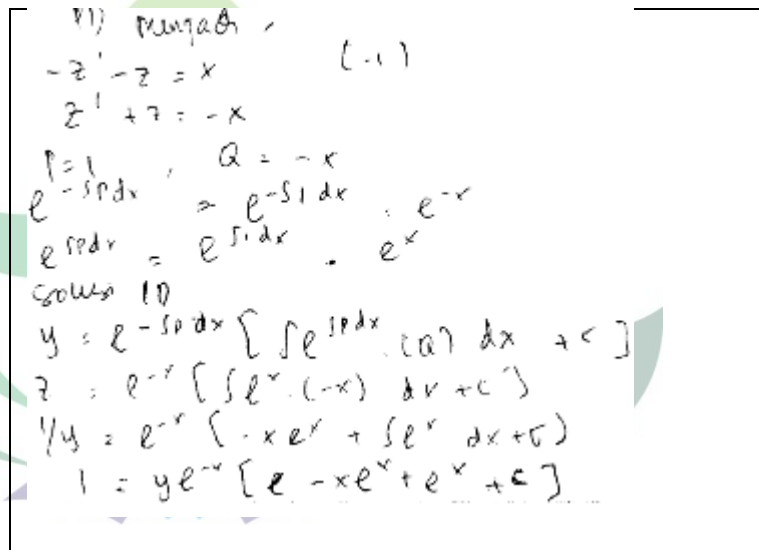 PD menjadi,
-z' - z = x (-1)
z' + z = -x
P = 1, Q = -x
e^{-∫P dx} = e^{-∫1 dx} = e^{-x}
e^{∫P dx} = e^{∫1 dx} = e^{x}
Solusi PD
y = e^{-∫P dx} [∫e^{∫P dx} . (Q) dx + c]
z = e^{-x} [∫e^x . (-x) dx + c]
1/y = e^{-x} (-x e^x + ∫e^x dx + c)
1 = y e^{-x} [e -x e^x + e^x + c]